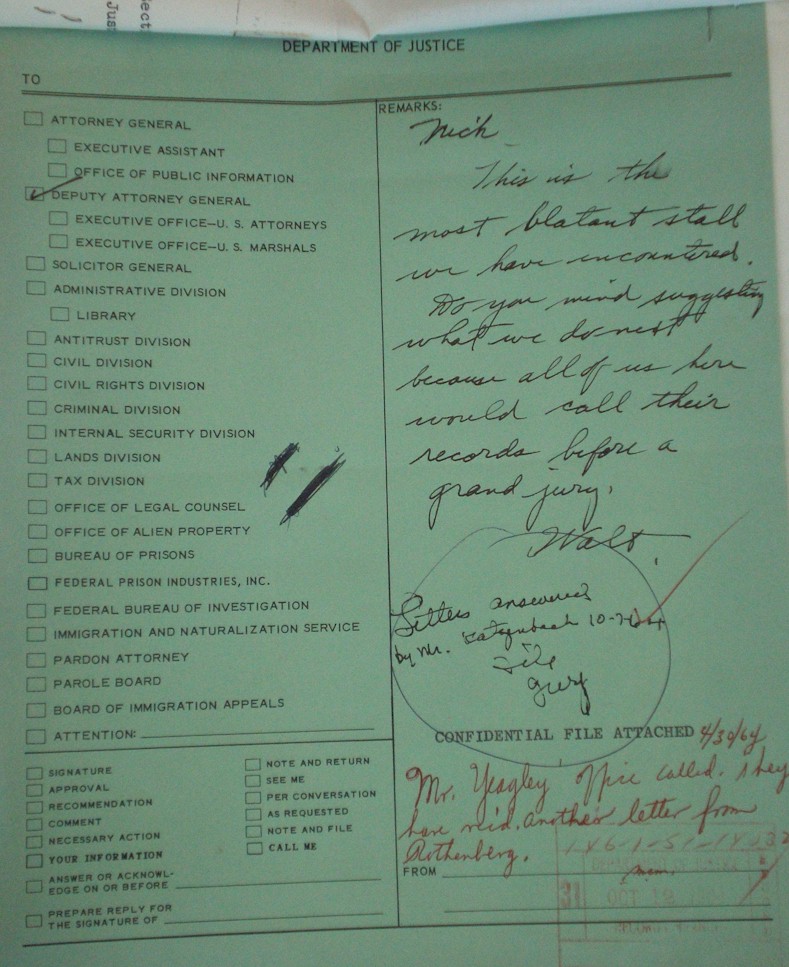 DEPARTMENT OF JUSTICE
TO
ATTORNEY GENERAL
EXECUTIVE ASSISTANT
OFFICE OF PUBLIC INFORMATION
DEPUTY ATTORNEY GENERAL
EXECUTIVE OFFICE—U. S. ATTORNEYS
EXECUTIVE OFFICE—U. S. MARSHALS
SOLICITOR GENERAL
ADMINISTRATIVE DIVISION
LIBRARY
ANTITRUST DIVISION
CIVIL DIVISION
CIVIL RIGHTS DIVISION
CRIMINAL DIVISION
INTERNAL SECURITY DIVISION
LANDS DIVISION
TAX DIVISION
OFFICE OF LEGAL COUNSEL
OFFICE OF ALIEN PROPERTY
BUREAU OF PRISONS
FEDERAL PRISON INDUSTRIES, INC.
FEDERAL BUREAU OF INVESTIGATION
IMMIGRATION AND NATURALIZATION SERVICE
PARDON ATTORNEY
PAROLE BOARD
BOARD OF IMMIGRATION APPEALS
ATTENTION:
SIGNATURE
APPROVAL
RECOMMENDATION
COMMENT
NECESSARY ACTION
YOUR INFORMATION
ANSWER OR ACKNOWL-
EDGE ON OR BEFORE
PREPARE REPLY FOR
THE SIGNATURE OF
NOTE AND RETURN
SEE ME
PER CONVERSATION
AS REQUESTED
NOTE AND FILE
CALL ME
REMARKS:
Nick
This is the
most blatant stall
we have encountered.
Do you mind suggesting
what we do next
because all of us here
would call their
records before a
grand jury.
Walt.
Letters answered
by Mr. Katzenbach
file
CONFIDENTIAL FILE ATTACHED 4/30/64
Mr. Yeagley office called. They
have rec'd. another letter from
Rothenberg.
FROM